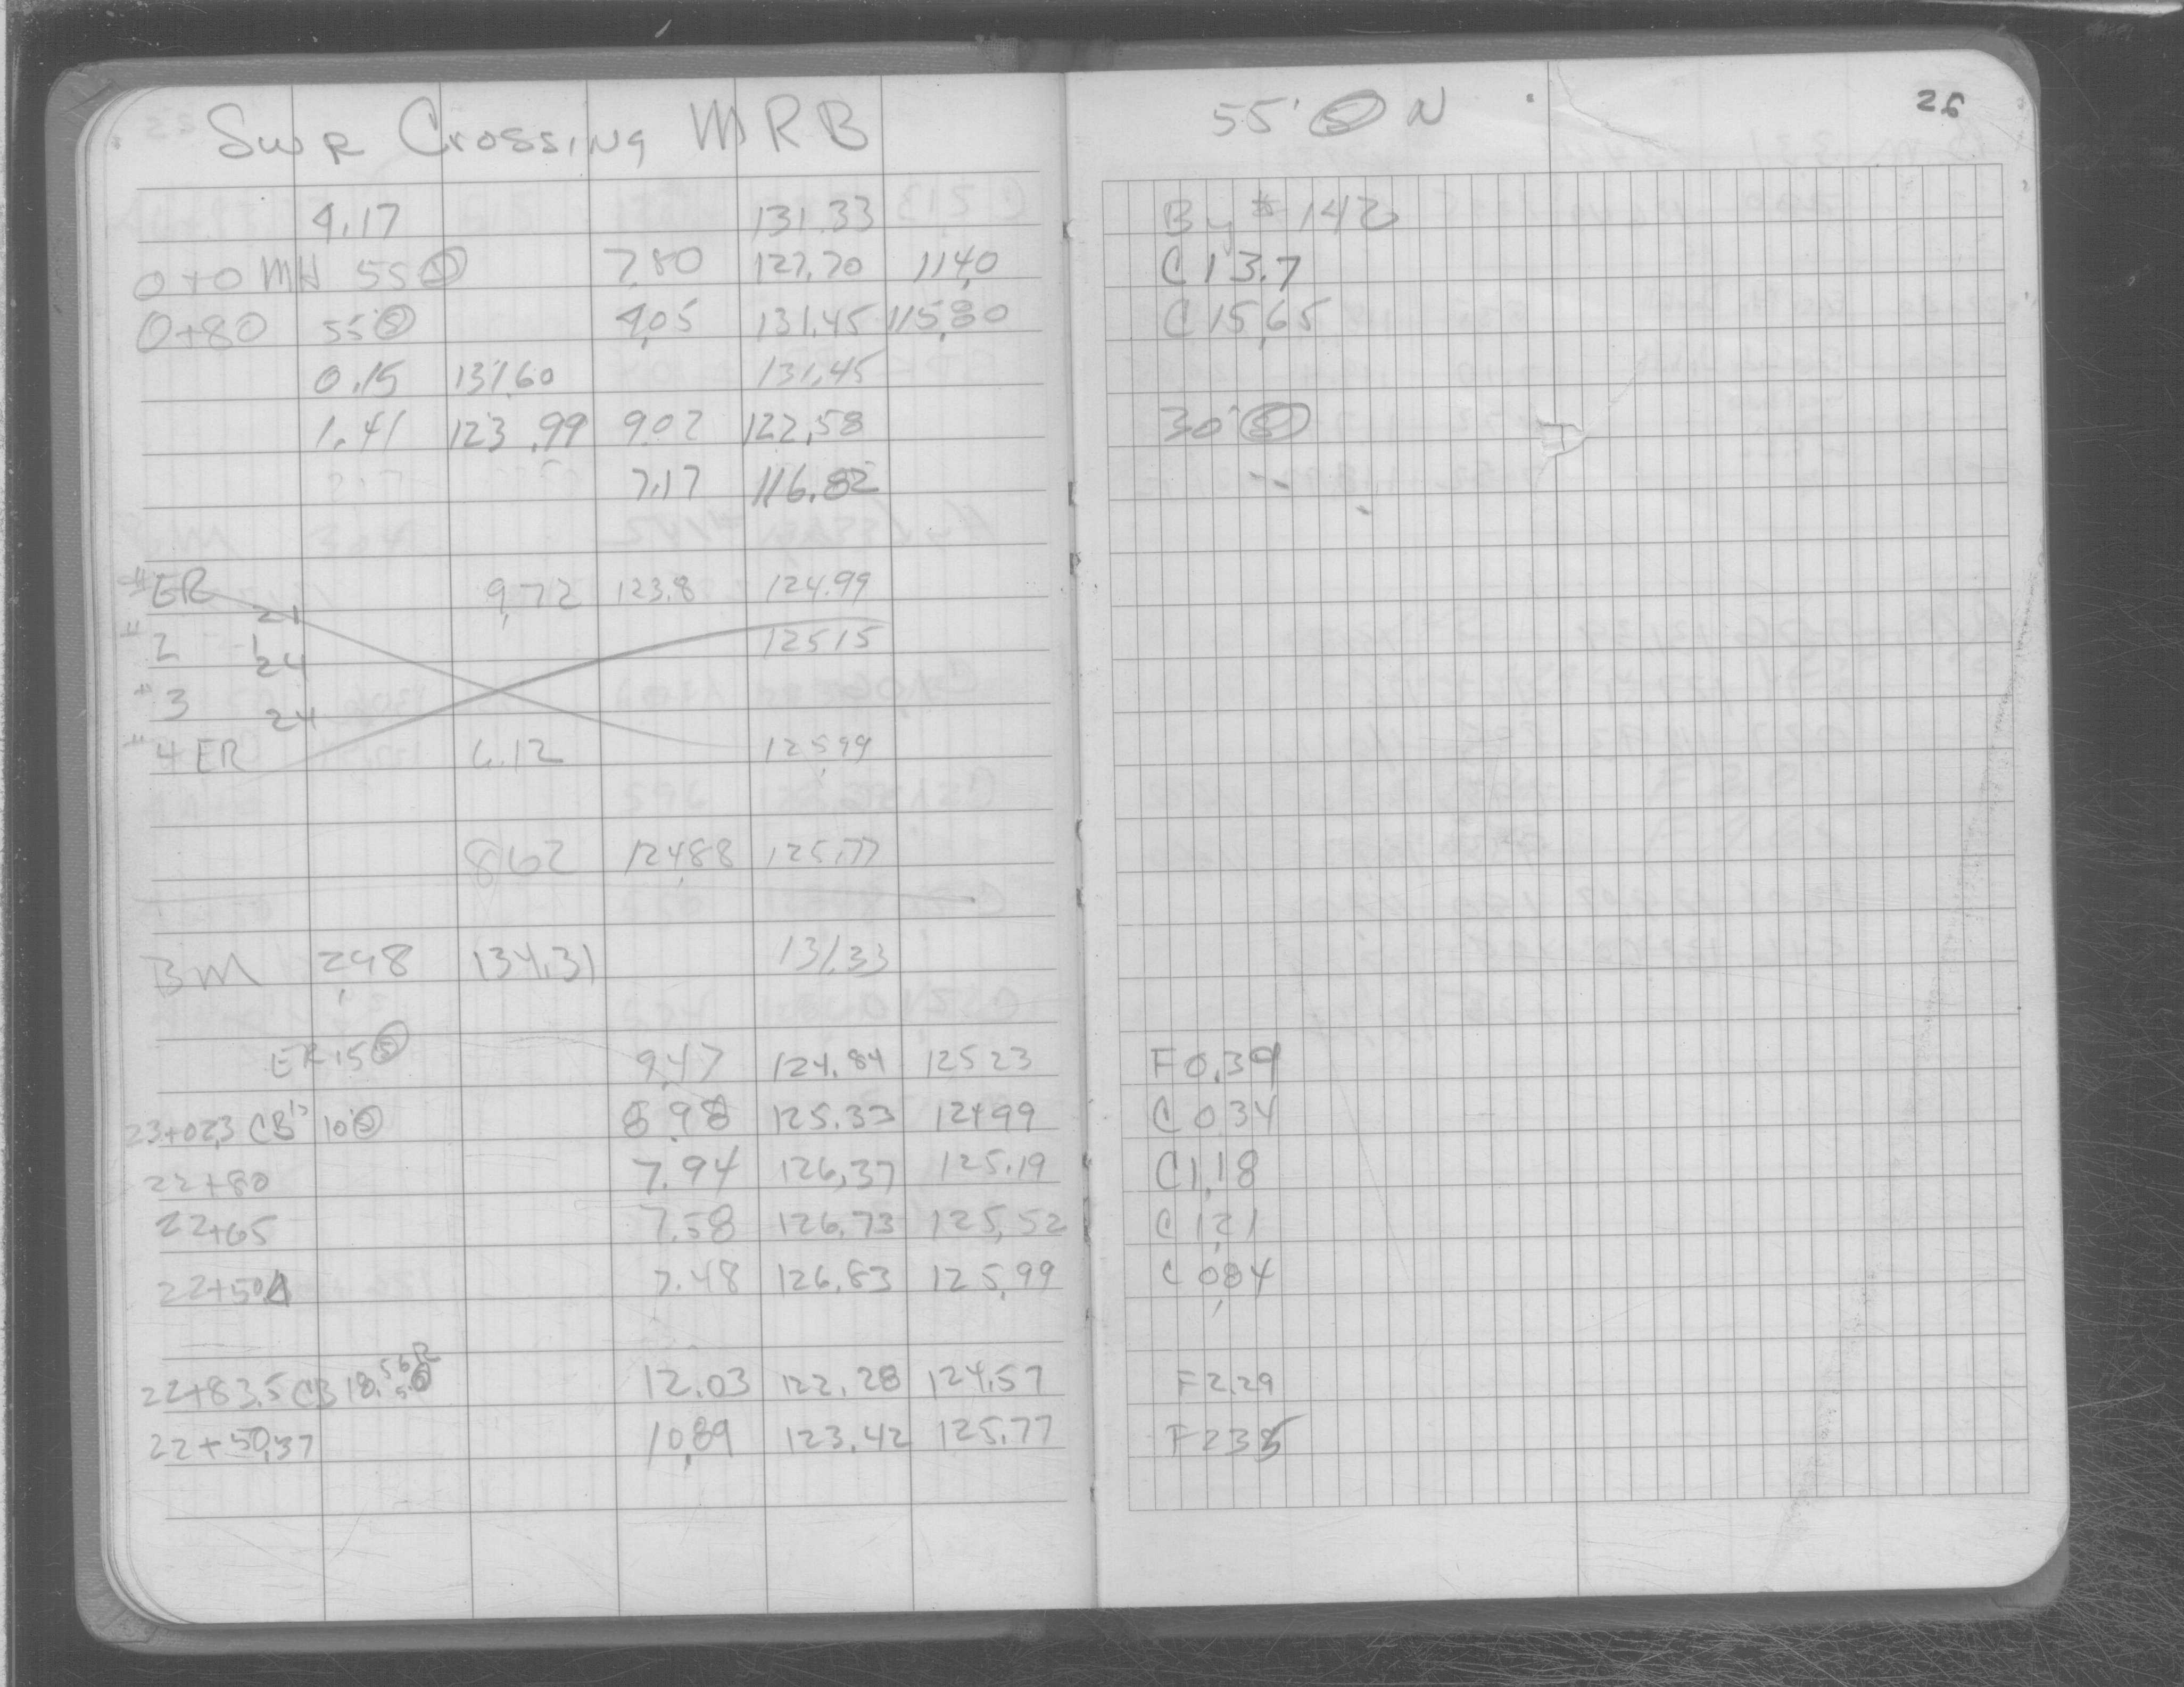 Swr Crossing MRB
4.17 131.33
0+0 MH 55 S 7.80 127.70 114.0
0+80 55 S 4.05 131.45 115.80
0.15 131.60 131.45
1.41 123.99 9.02 122.58
7.17 116.82
#ER 9.72 123.8 124.99
21
"2 125.15
24
"3
24
"4 ER 6.12 125.99
8.62 124.88 125.77
BM 2.98 134.31 131.33
ER 15 S 9.47 124.84 125.23
23+02.3 CB 10 S 8.98 125.33 124.99
22+80 7.94 126.37 125.19
22+65 7.58 126.73 125.52
22+50 7.48 126.83 125.99
22+83.5 CB 18.5 12.03 122.28 124.57
22+50.37 10.89 123.42 125.77
55' S N 26
By #142
C 13.7
C 15.65
30' S
F 0.39
C 0.34
C 1.18
C 1.21
C 0.84
F 2.29
F 2.35